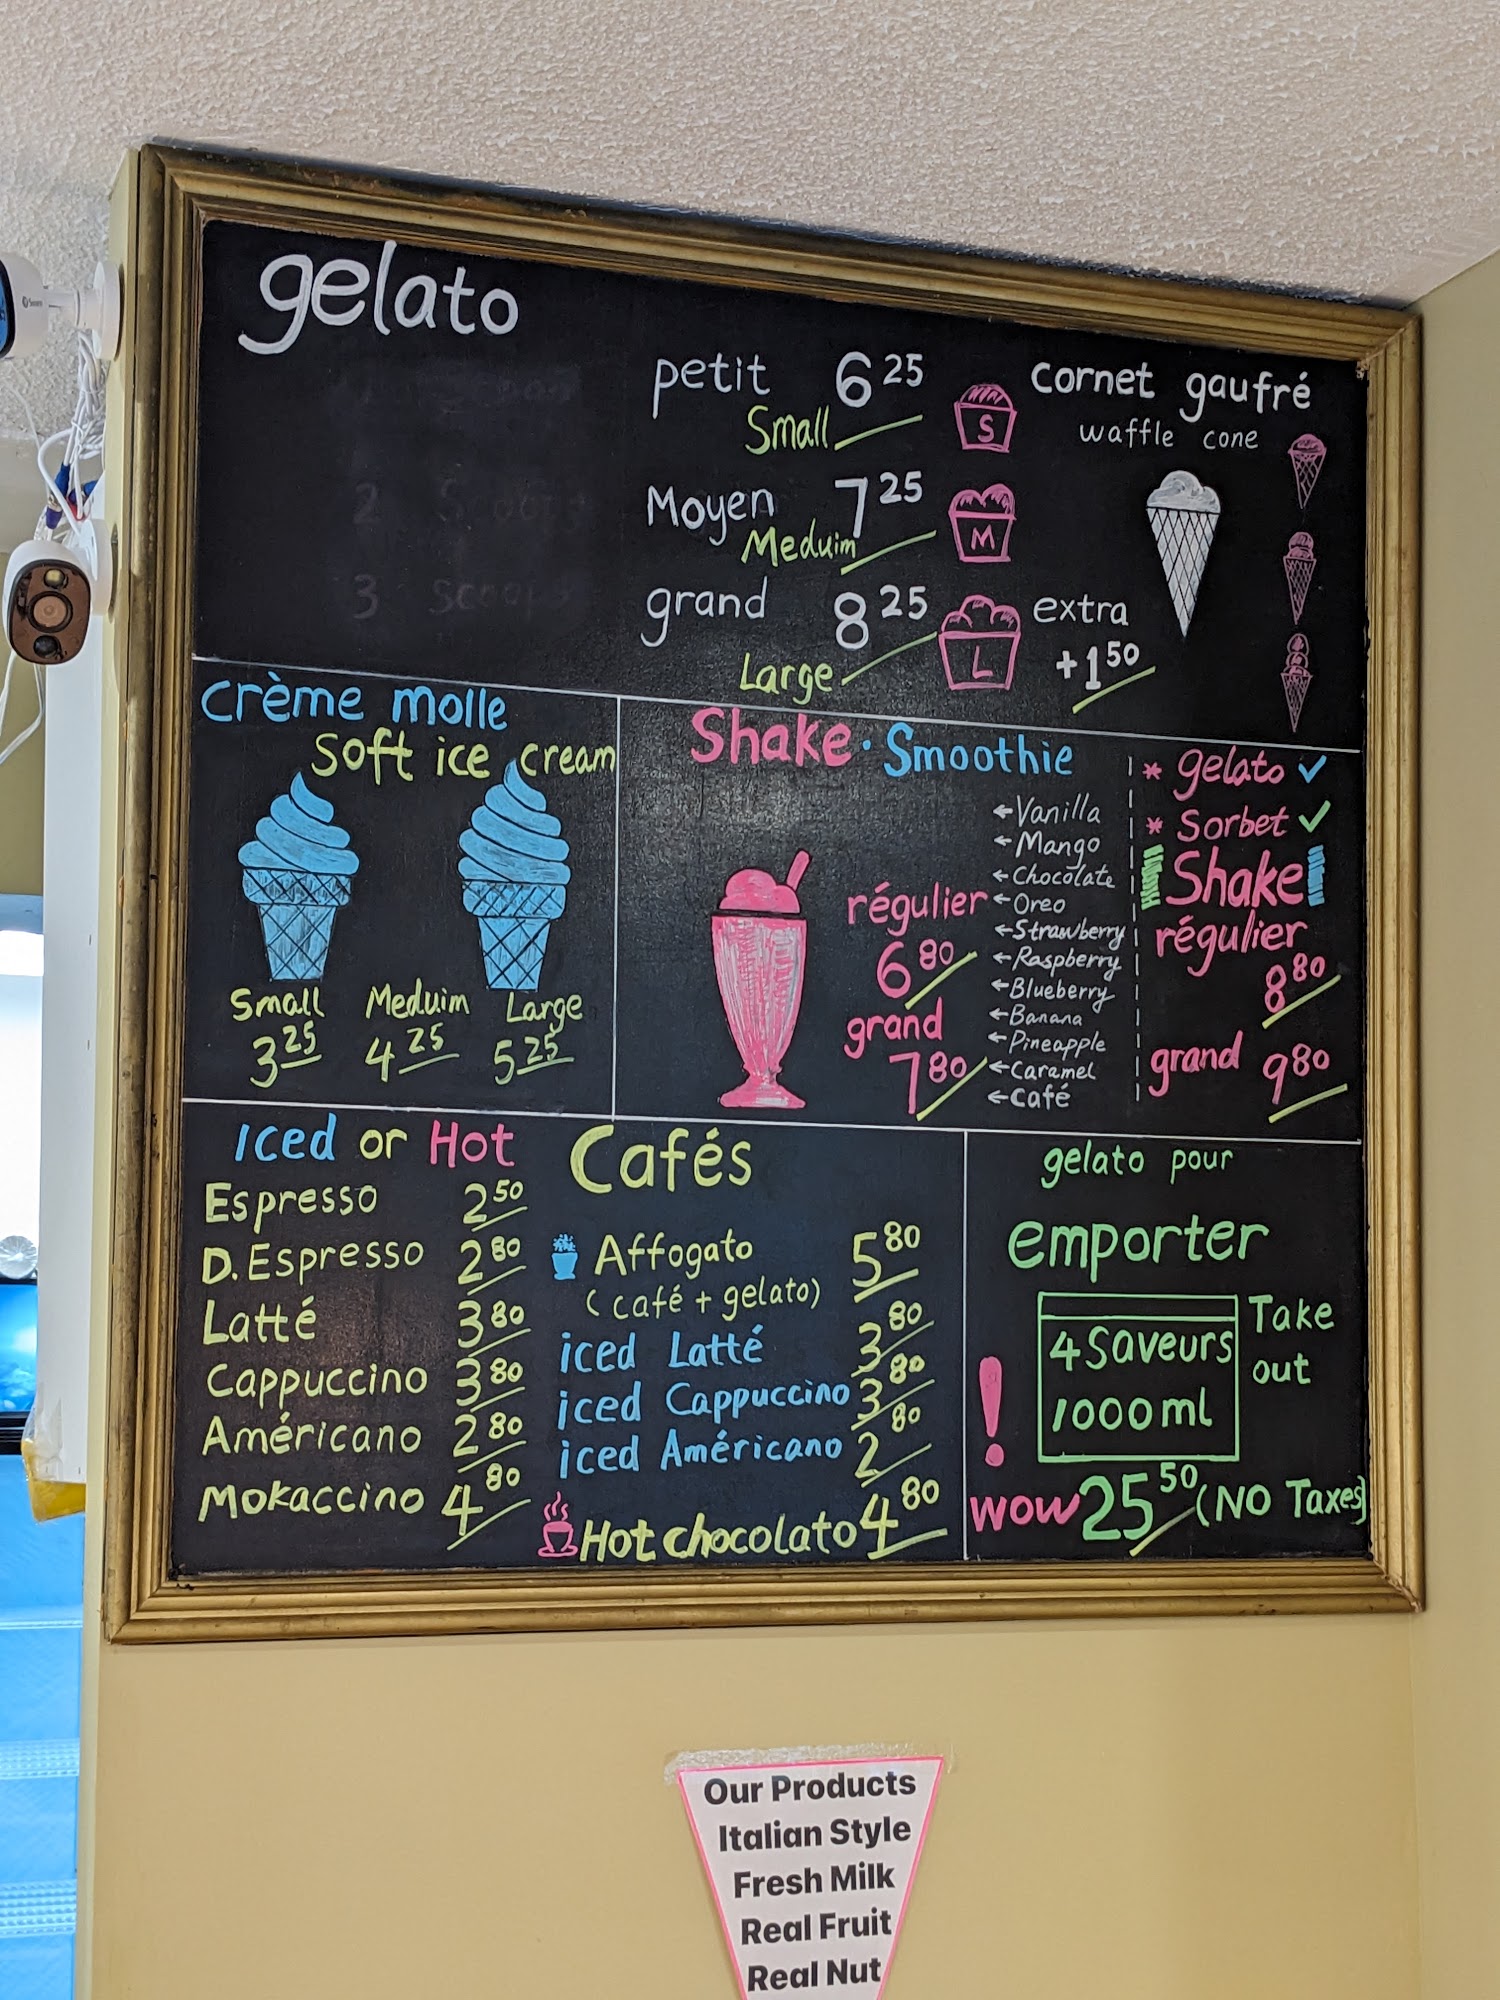 gelato
petit 6 25
Small
S
Moyen 7 25
Meduim
M
grand 8 25
Large
L
cornet gaufré
waffle cone
extra
+1 50
2 Scoops
3 scoops
crème molle
Soft ice cream
Small Meduim Large
3 25 4 25 5 25
Shake · Smoothie
régulier
6 80
grand
7 80
←Vanilla
←Mango
←Chocolate
←Oreo
←Strawberry
←Raspberry
←Blueberry
←Banana
←Pineapple
←Caramel
←Café
* gelato ✓
* Sorbet ✓
Shake
régulier
8 80
grand 9 80
Iced or Hot
Espresso 2 50
D.Espresso 2 80
Latté 3 80
Cappuccino 3 80
Américano 2 80
Mokaccino 4 80
Cafés
Affogato 5 80
(café + gelato)
iced Latté 3 80
iced Cappuccino 3 80
iced Américano 2 80
Hot chocolato 4 80
gelato pour
emporter
4 Saveurs
1000ml
Take
out
! WOW 25 50 (NO Taxes)
Our Products
Italian Style
Fresh Milk
Real Fruit
Real Nut